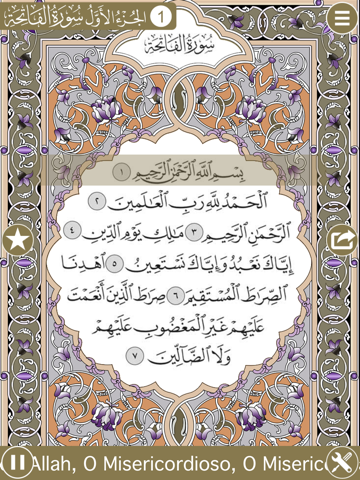 سُورَةُ الْفَاتِحَةِ الجُزْءُ الأَوَّلُ 1
سُورَةُ الْفَاتِحَةِ
بِسْمِ ٱللَّهِ ٱلرَّحْمَٰنِ ٱلرَّحِيمِ ١
ٱلْحَمْدُ لِلَّهِ رَبِّ ٱلْعَٰلَمِينَ ٢
ٱلرَّحْمَٰنِ ٱلرَّحِيمِ ٣ مَٰلِكِ يَوْمِ ٱلدِّينِ ٤
إِيَّاكَ نَعْبُدُ وَإِيَّاكَ نَسْتَعِينُ ٥ ٱهْدِنَا
ٱلصِّرَٰطَ ٱلْمُسْتَقِيمَ ٦ صِرَٰطَ ٱلَّذِينَ أَنْعَمْتَ
عَلَيْهِمْ غَيْرِ ٱلْمَغْضُوبِ عَلَيْهِمْ
وَلَا ٱلضَّآلِّينَ ٧
Allah, O Misericordioso, O Miseric